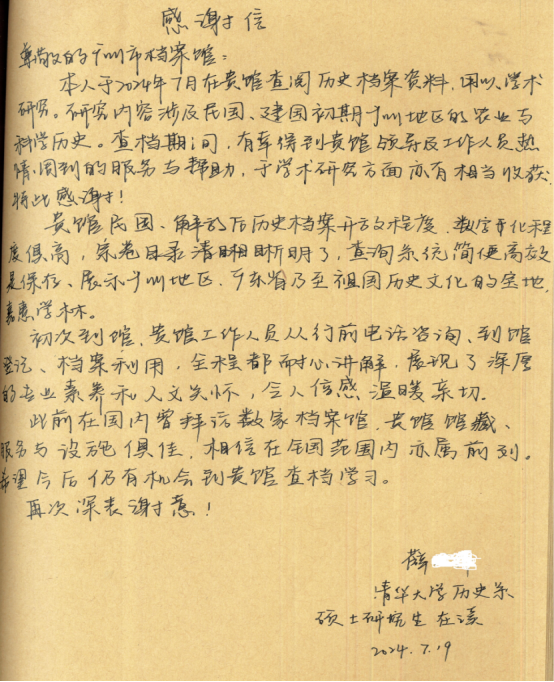 感谢信
尊敬的广州市档案馆：
本人于2024年7月在贵馆查阅历史档案资料，用以学术
研究。研究内容涉及民国、建国初期广州地区的农业与
科学历史。查档期间，有幸得到贵馆领导及工作人员热
情、周到的服务与帮助，于学术研究方面亦有相当收获，
特此感谢！
贵馆民国、解放后历史档案开放程度、数字化程
度俱高，案卷目录清晰明了，查询系统简便高效，
是保存、展示广州地区、广东省乃至祖国历史文化的宝地，
嘉惠学林。
初次到馆，贵馆工作人员从行前电话咨询、到馆
登记、档案利用，全程都耐心讲解，展现了深厚
的专业素养和人文关怀，令人倍感温暖亲切。
此前在国内曾拜访数家档案馆，贵馆馆藏、
服务与设施俱佳，相信在全国范围内亦属前列。
希望今后仍有机会到贵馆查档学习。
再次深表谢意！
清华大学历史系
硕士研究生 在读
2024.7.19